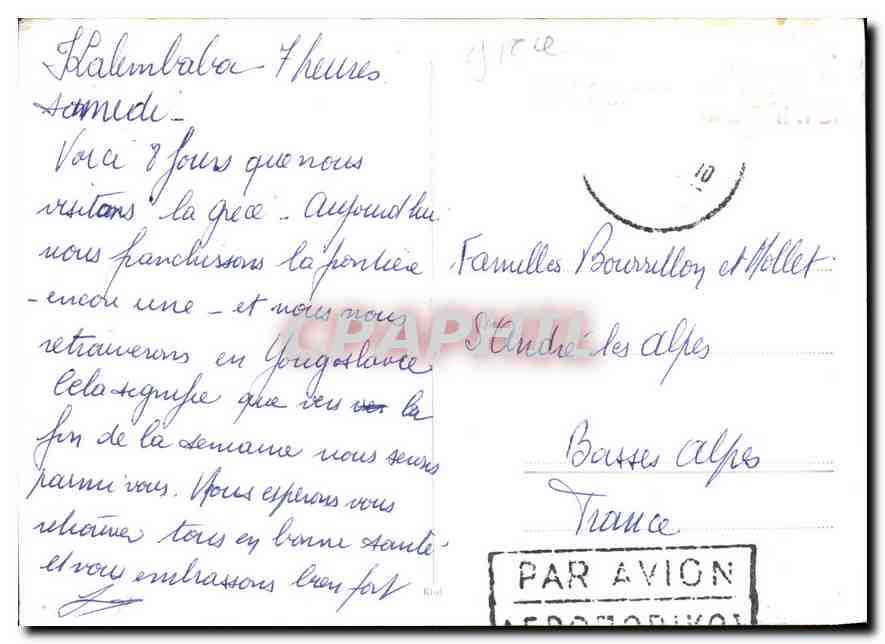 Kalembaba 7 heures
samedi -
Voici 8 jours que nous
visitons la grèce - Aujourd'hui
nous franchissons la frontière
- encore une - et nous nous
retrouverons en Yougoslavie
Cela signifie que vers ver la
fin de la semaine nous serons
parmi vous. Nous espérons vous
retrouver tous en bonne santé
et vous embrassons bien fort
10
Familles Bourrillon et Mollet
St André les Alpes
Basses Alpes
France
PAR AVION
ΑΕΡΟΠΟΡΙΚΩΣ
CPAPHIL